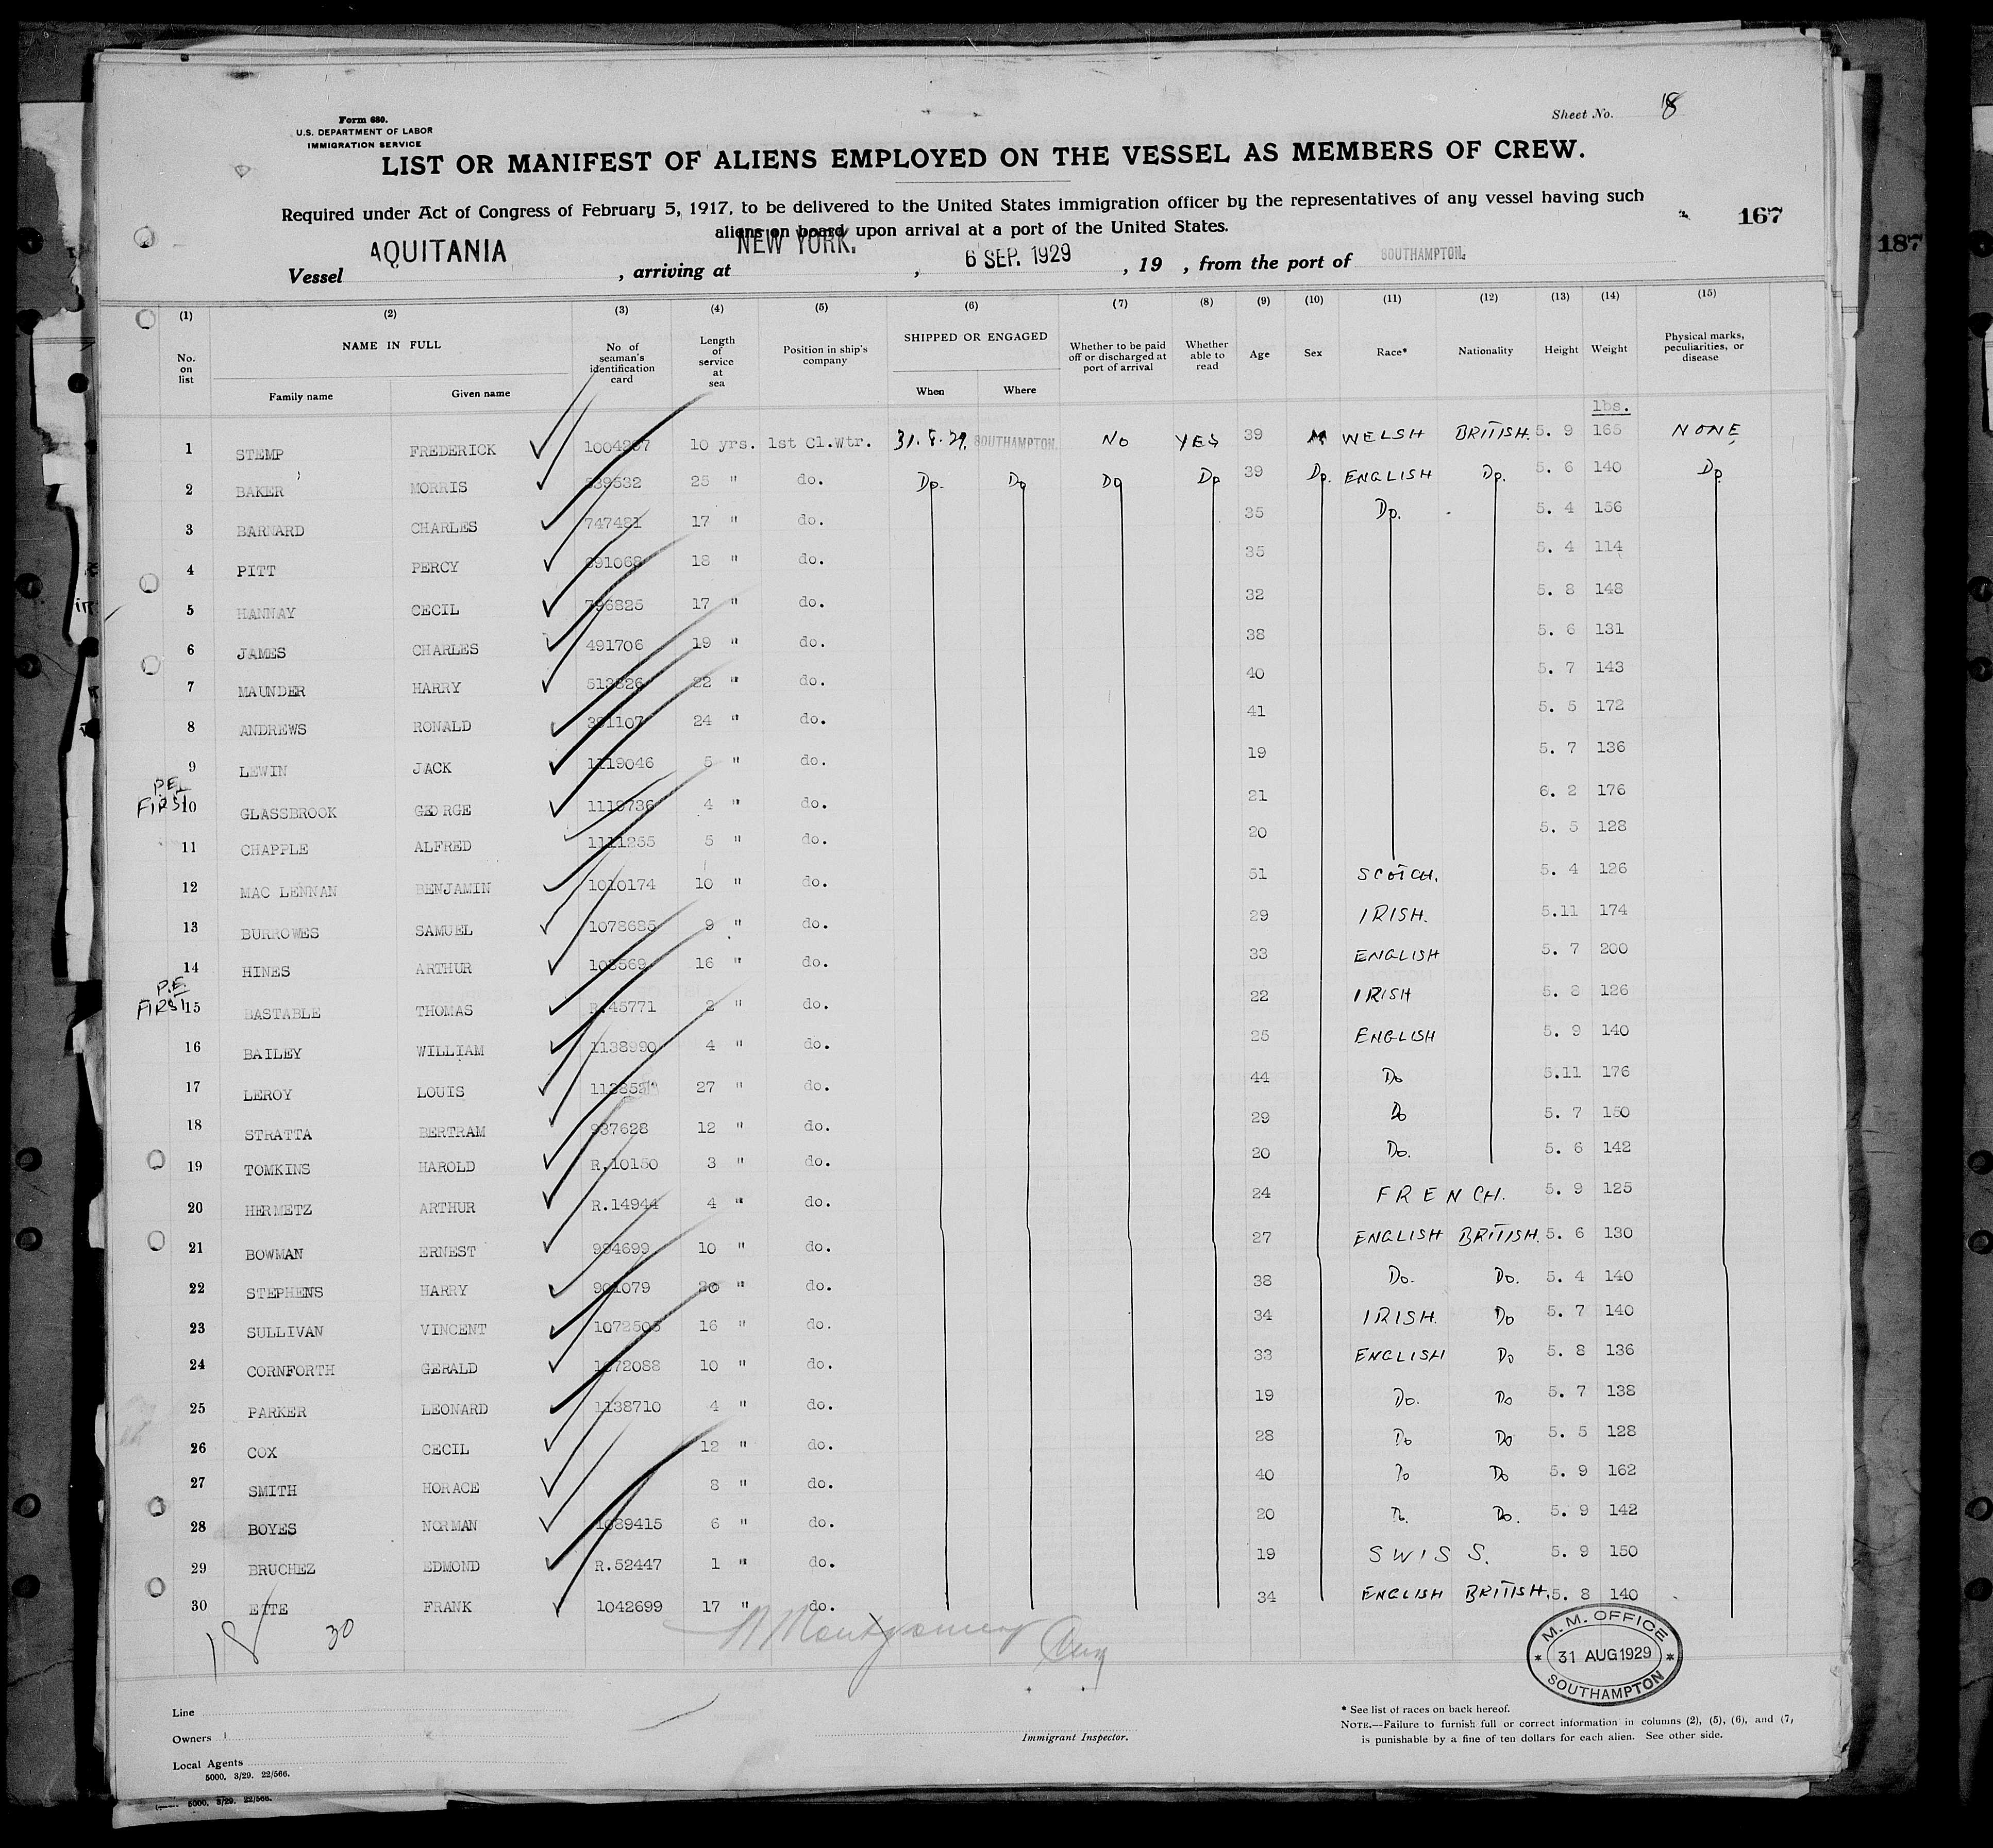 Form 680.
U.S. DEPARTMENT OF LABOR
IMMIGRATION SERVICE
Sheet No. 8
LIST OR MANIFEST OF ALIENS EMPLOYED ON THE VESSEL AS MEMBERS OF CREW.
Required under Act of Congress of February 5, 1917, to be delivered to the United States immigration officer by the representatives of any vessel having such
aliens on board upon arrival at a port of the United States.
167
187
Vessel AQUITANIA, arriving at NEW YORK., 6 SEP. 1929, 19 , from the port of SOUTHAMPTON.
(1) (2) (3) (4) (5) (6) (7) (8) (9) (10) (11) (12) (13) (14) (15)
No. on list NAME IN FULL Family name Given name No. of seaman's identification card Length of service at sea Position in ship's company SHIPPED OR ENGAGED When Where Whether to be paid off or discharged at port of arrival Whether able to read Age Sex Race* Nationality Height Weight Physical marks, peculiarities, or disease
lbs.
1 STEMP FREDERICK 10 yrs. 1st Cl.Wtr. 31.8.29. SOUTHAMPTON. NO YES 39 M WELSH BRITISH. 5. 9 165 NONE
2 BAKER MORRIS 25 " do. Do. Do Do Do 39 Do. ENGLISH Do. 5. 6 140 Do
3 BARNARD CHARLES 747481 17 " do. 35 Do. 5. 4 156
4 PITT PERCY 18 " do. 35 5. 4 114
5 HANNAY CECIL 796825 17 " do. 32 5. 8 148
6 JAMES CHARLES 491706 19 " do. 38 5. 6 131
7 MAUNDER HARRY 22 " do. 40 5. 7 143
8 ANDREWS RONALD 24 " do. 41 5. 5 172
9 LEWIN JACK 1119046 5 " do. 19 5. 7 136
P.E. FIRST
10 GLASSBROOK GEORGE 1119736 4 " do. 21 6. 2 176
11 CHAPPLE ALFRED 1111255 5 " do. 20 5. 5 128
12 MAC LENNAN BENJAMIN 1010174 10 " do. 51 SCOTCH. 5. 4 126
13 BURROWES SAMUEL 1078685 9 " do. 29 IRISH. 5.11 174
14 HINES ARTHUR 16 " do. 33 ENGLISH 5. 7 200
P.E. FIRST
15 BASTABLE THOMAS R.45771 2 " do. 22 IRISH 5. 8 126
16 BAILEY WILLIAM 1138990 4 " do. 25 ENGLISH 5. 9 140
17 LEROY LOUIS 27 " do. 44 Do 5.11 176
18 STRATTA BERTRAM 937628 12 " do. 29 Do 5. 7 150
19 TOMKINS HAROLD R.10150 3 " do. 20 Do. 5. 6 142
20 HERMETZ ARTHUR R.14944 4 " do. 24 FRENCH. 5. 9 125
21 BOWMAN ERNEST 994699 10 " do. 27 ENGLISH BRITISH. 5. 6 130
22 STEPHENS HARRY 901079 20 " do. 38 Do. Do. 5. 4 140
23 SULLIVAN VINCENT 1072505 16 " do. 34 IRISH. Do 5. 7 140
24 CORNFORTH GERALD 1072088 10 " do. 33 ENGLISH Do 5. 8 136
25 PARKER LEONARD 1138710 4 " do. 19 Do. Do 5. 7 138
26 COX CECIL 12 " do. 28 Do Do 5. 5 128
27 SMITH HORACE 8 " do. 40 Do Do 5. 9 162
28 BOYES NORMAN 1089415 6 " do. 20 Do. Do. 5. 9 142
29 BRUCHEZ EDMOND R.52447 1 " do. 19 SWISS. 5. 9 150
30 ETTE FRANK 1042699 17 " do. 34 ENGLISH BRITISH. 5. 8 140
18 30
Montgomery
M. M. OFFICE
* 31 AUG 1929 *
SOUTHAMPTON
Line
Owners
Local Agents
5000, 3/29. 22/566.
Immigrant Inspector.
* See list of races on back hereof.
NOTE.—Failure to furnish full or correct information in columns (2), (5), (6), and (7)
is punishable by a fine of ten dollars for each alien. See other side.
5000, 3/29. 22/566.